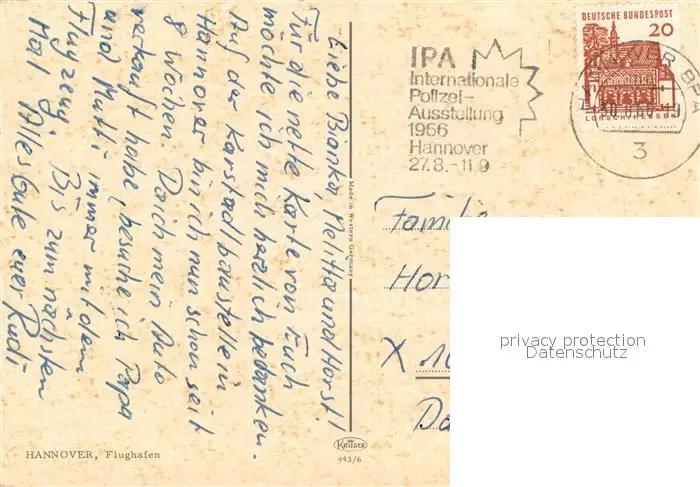 Liebe Bianka, Melitta und Horst!
Für die nette Karte von Euch
möchte ich mich herzlich bedanken.
Auf der Karstadtbaustelle in
Hannover bin ich nun schon seit
8 Wochen. Da ich mein Auto
verkauft habe, besuche ich Papa
und Mutti immer mit dem
Flugzeug. Bis zum nächsten
Mal Alles Gute euer Rudi
HANNOVER, Flughafen
Made in Western Germany
KRÜGER
943/6
IPA
Internationale
Polizei-
Ausstellung
1966
Hannover
27.8.-11 9
DEUTSCHE BUNDESPOST
20
LORSCH/HESSEN
HANNOVER BPA
3
Familie
Hor
X 10
Da
privacy protection
Datenschutz